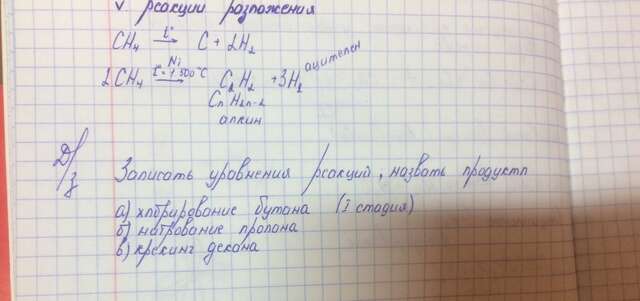 √ реакции разложения
CH₄ →t° C + 2H₂
2CH₄ →Ni t=1500°C C₂H₂ + 3H₂ ацителен
CnH2n-2
алкин
Д/з Записать уровнения реакций, назвать продукты
а) хлорирование бутана (I стадия)
б) нитрование пропана
в) крекинг декана